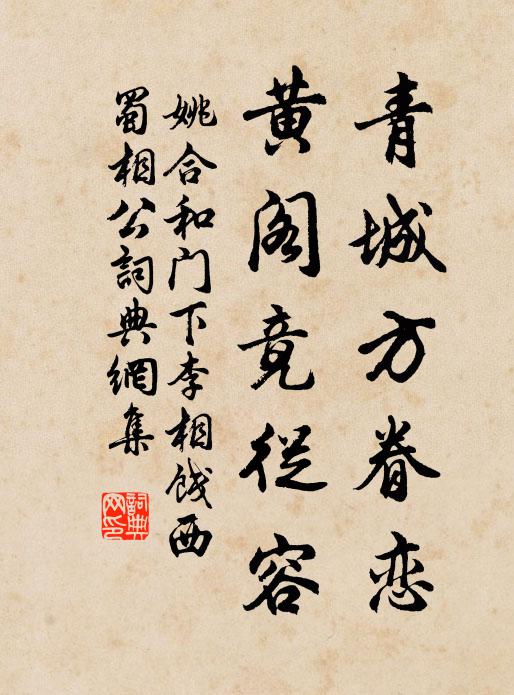 青城方眷恋
黄阁竟從容
姚合和门下李相饯西
蜀相公詞典網集
詞典
网印